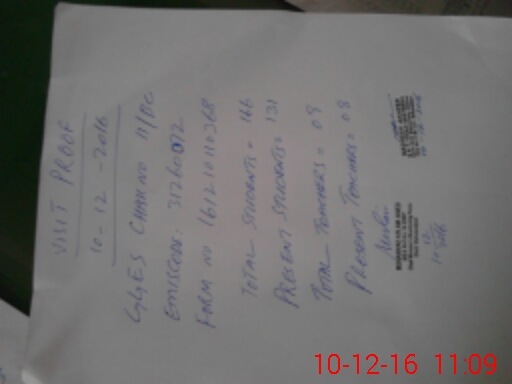 VISIT PROOF
10-12-2016
GGES CHAK NO 11/BC
EMISCODE. 31260072
FORM NO 161210110368
TOTAL STUDENTS = 166
PRESENT STUDENTS = 131
TOTAL TEACHERS = 09
PRESENT TEACHERS = 08
10-12-16 11:09